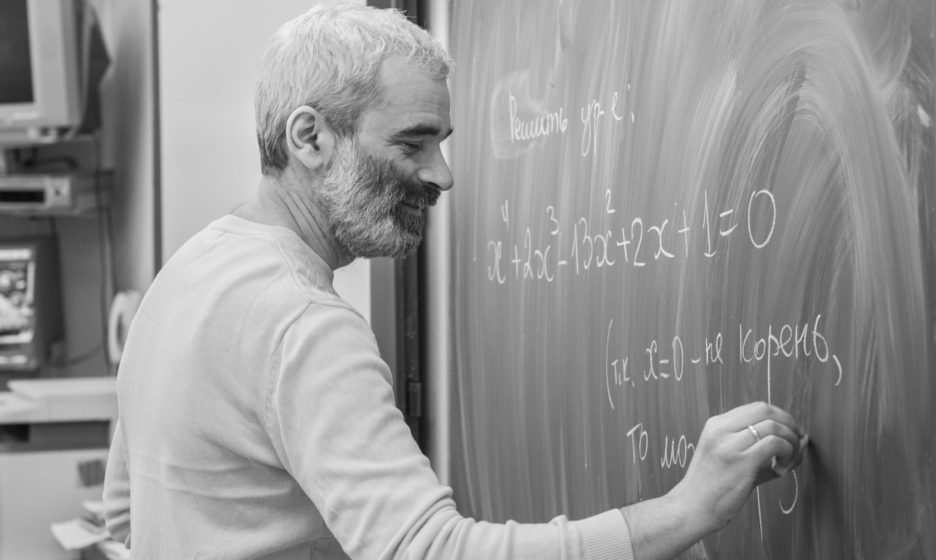 Решить ур-е:
x⁴+2x³-13x²+2x+1=0
(т.к. x=0-не корень,
то